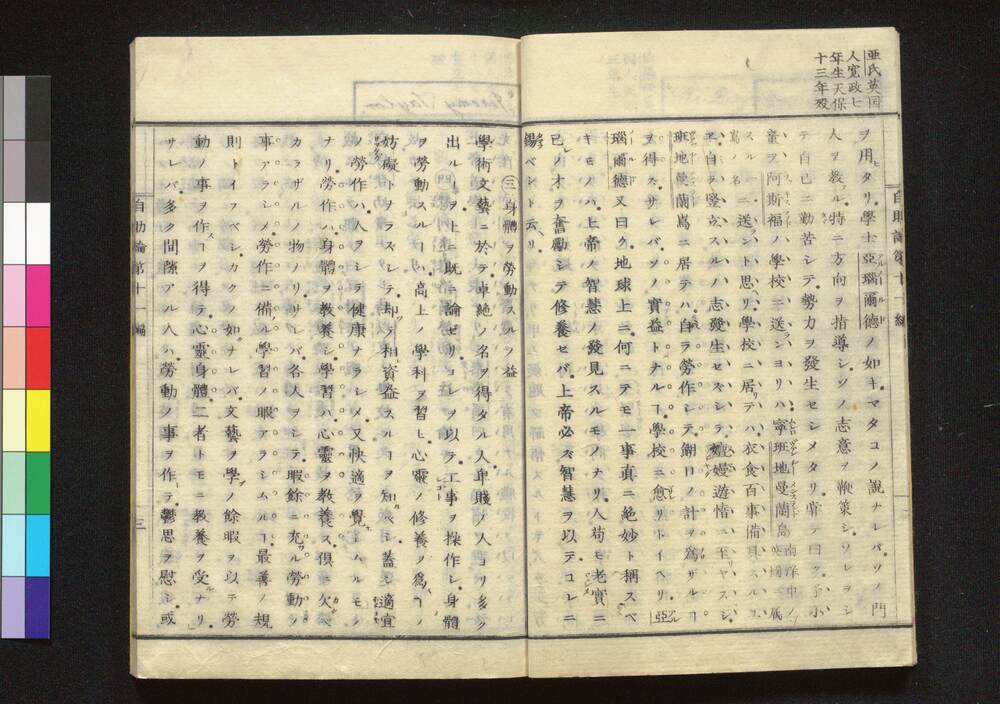 亜氏英国
人寛政七
年生天保
十三年歿
ヲ用ヒタリ學士亞瑙爾德ノ如キマタコノ説ナレバソノ門
人ヲ教フル特ニ方向ヲ指導シソノ志意ヲ鞭策シソレヲシ
テ自己ニ勤苦シテ勢力ヲ發生セシメタリ嘗テ曰ク予小
童ヲ阿斯福ノ學校ニ送ランヨリハ寧班地曼蘭島南洋中ノ英國ニ属
スル島ノ名ニ送ラント思リ學校ニ居テハ衣食百事備具スルユ
ヱ自ラ竪立スルノ志發生セズシテ嬾嫚遊惰ニ至ヤスシ
班地曼蘭島ニ居テハ自ラ勞作シテ餬口ノ計ヲ爲ザルヿ
ヲ得ズサレバソノ實益トナルヿ學校ニ愈リトイヘリ亞
瑙爾德又曰ク地球上ニ何ニテモ一事真ニ絶妙ト稱スベ
キモノハ上帝ノ智慧ノ發見スルモノナリ人苟モ老實ニ
己レノオヲ奮勵シテ修養セバ上帝必ズ智慧ヲ以テコレニ
錫ベシト云リ
自助論第十一編
㊂身體ヲ勞動スルノ益
學術文藝ニ於テ卓絶ノ名ヲ得タル人卑賤ノ人ヨリ多ク
出ルヿヲ上ニ既ニ論ゼリコレヲ以テ工事ヲ操作シ身體
ヲ勞動スルヿ高上ノ學科ヲ習ヒ心靈ノ修養ノ爲ヿノ
妨礙トナラズシテ却テ相資益スルヿヲ知ベシ蓋シ適宜
ノ勞作ハ人ヲシテ健康ナラシメ又快適ヲ覺エハルモノ
ナリ勞作ハ身體ヲ教養シ學習ハ心靈ヲ教養ス俱ニ欠ベ
カラザルノ物ナリサレバ名人ヲシテ暇餘ニ充ル勞動ノ
事アラシメ勞作ニ備ル學習ノ暇アラシムルヿ最善ノ規
則トイフベシカクノ如クナレバ文藝ヲ學ブノ餘暇ヲ以テ勞
動ノ事ヲ作スヿヲ得テ心靈身體二者トモニ教養ヲ受ルナリ
サレバ多ク間隙アル人ハ勞動ノ事ヲ作テ鬱思ヲ慰シ或
自助論第十一編
三